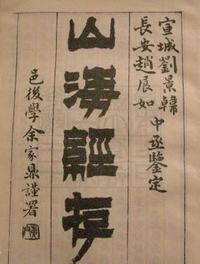 宣城劉景韓
長安趙展如
中丞鑒定
山海經存
邑後學余家鼎謹署